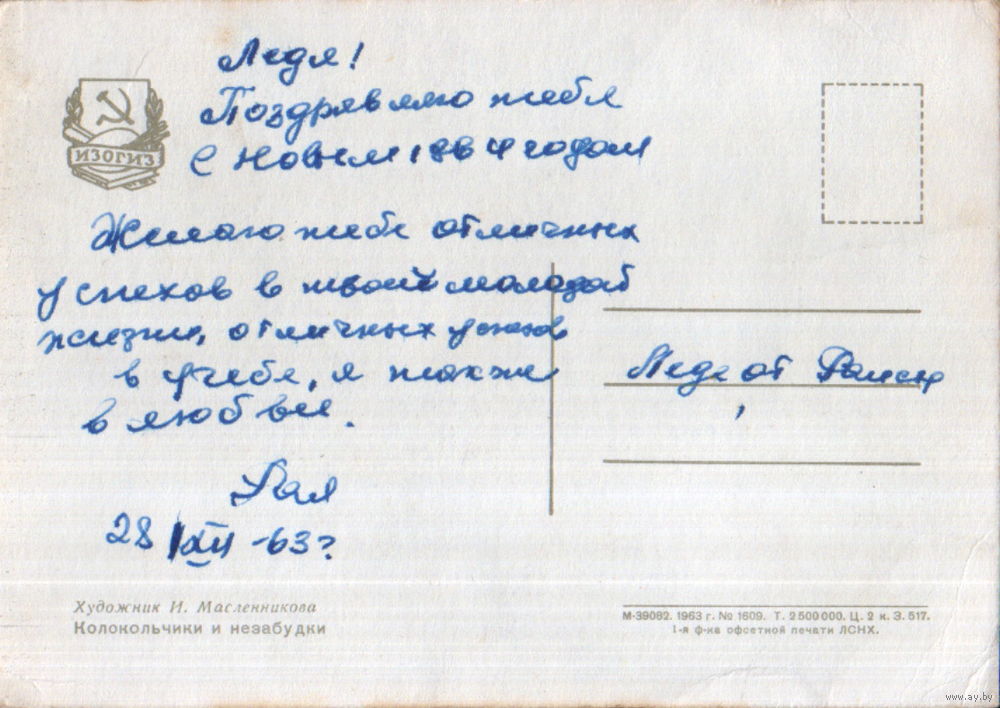 Ледя!
Поздравляю тебя
с новым 1964 годом
ИЗОГИЗ
Желаю тебе отличных
успехов в твоей молодой
жизни, отличных успехов
в учебе, а также
в любви.
Рая
28/XII-63г
Леде от Раисы
Художник И. Масленникова
Колокольчики и незабудки
М-39082. 1963 г. № 1609. Т. 2 500 000. Ц. 2 к. З. 517.
1-я ф-ка офсетной печати ЛСНХ.
www.ay.by